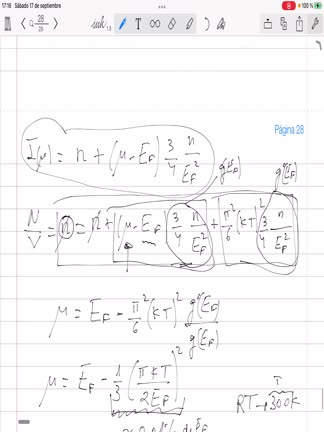 17:16 Sábado 17 de septiembre 100 %
28
28
Página 28
I(μ) = n + (μ - E_F) 3/4 n/E_F^2
g'(E_F) g'(E_F)
N/V = n = n + (μ - E_F) 3/4 n/E_F^2 + π^2/6 (kT)^2 3/4 n/E_F^2
μ = E_F - π^2/6 (kT)^2 g'(E_F)/g(E_F)
μ = E_F - 1/3 (πkT/2E_F)^2
T
RT → 300K